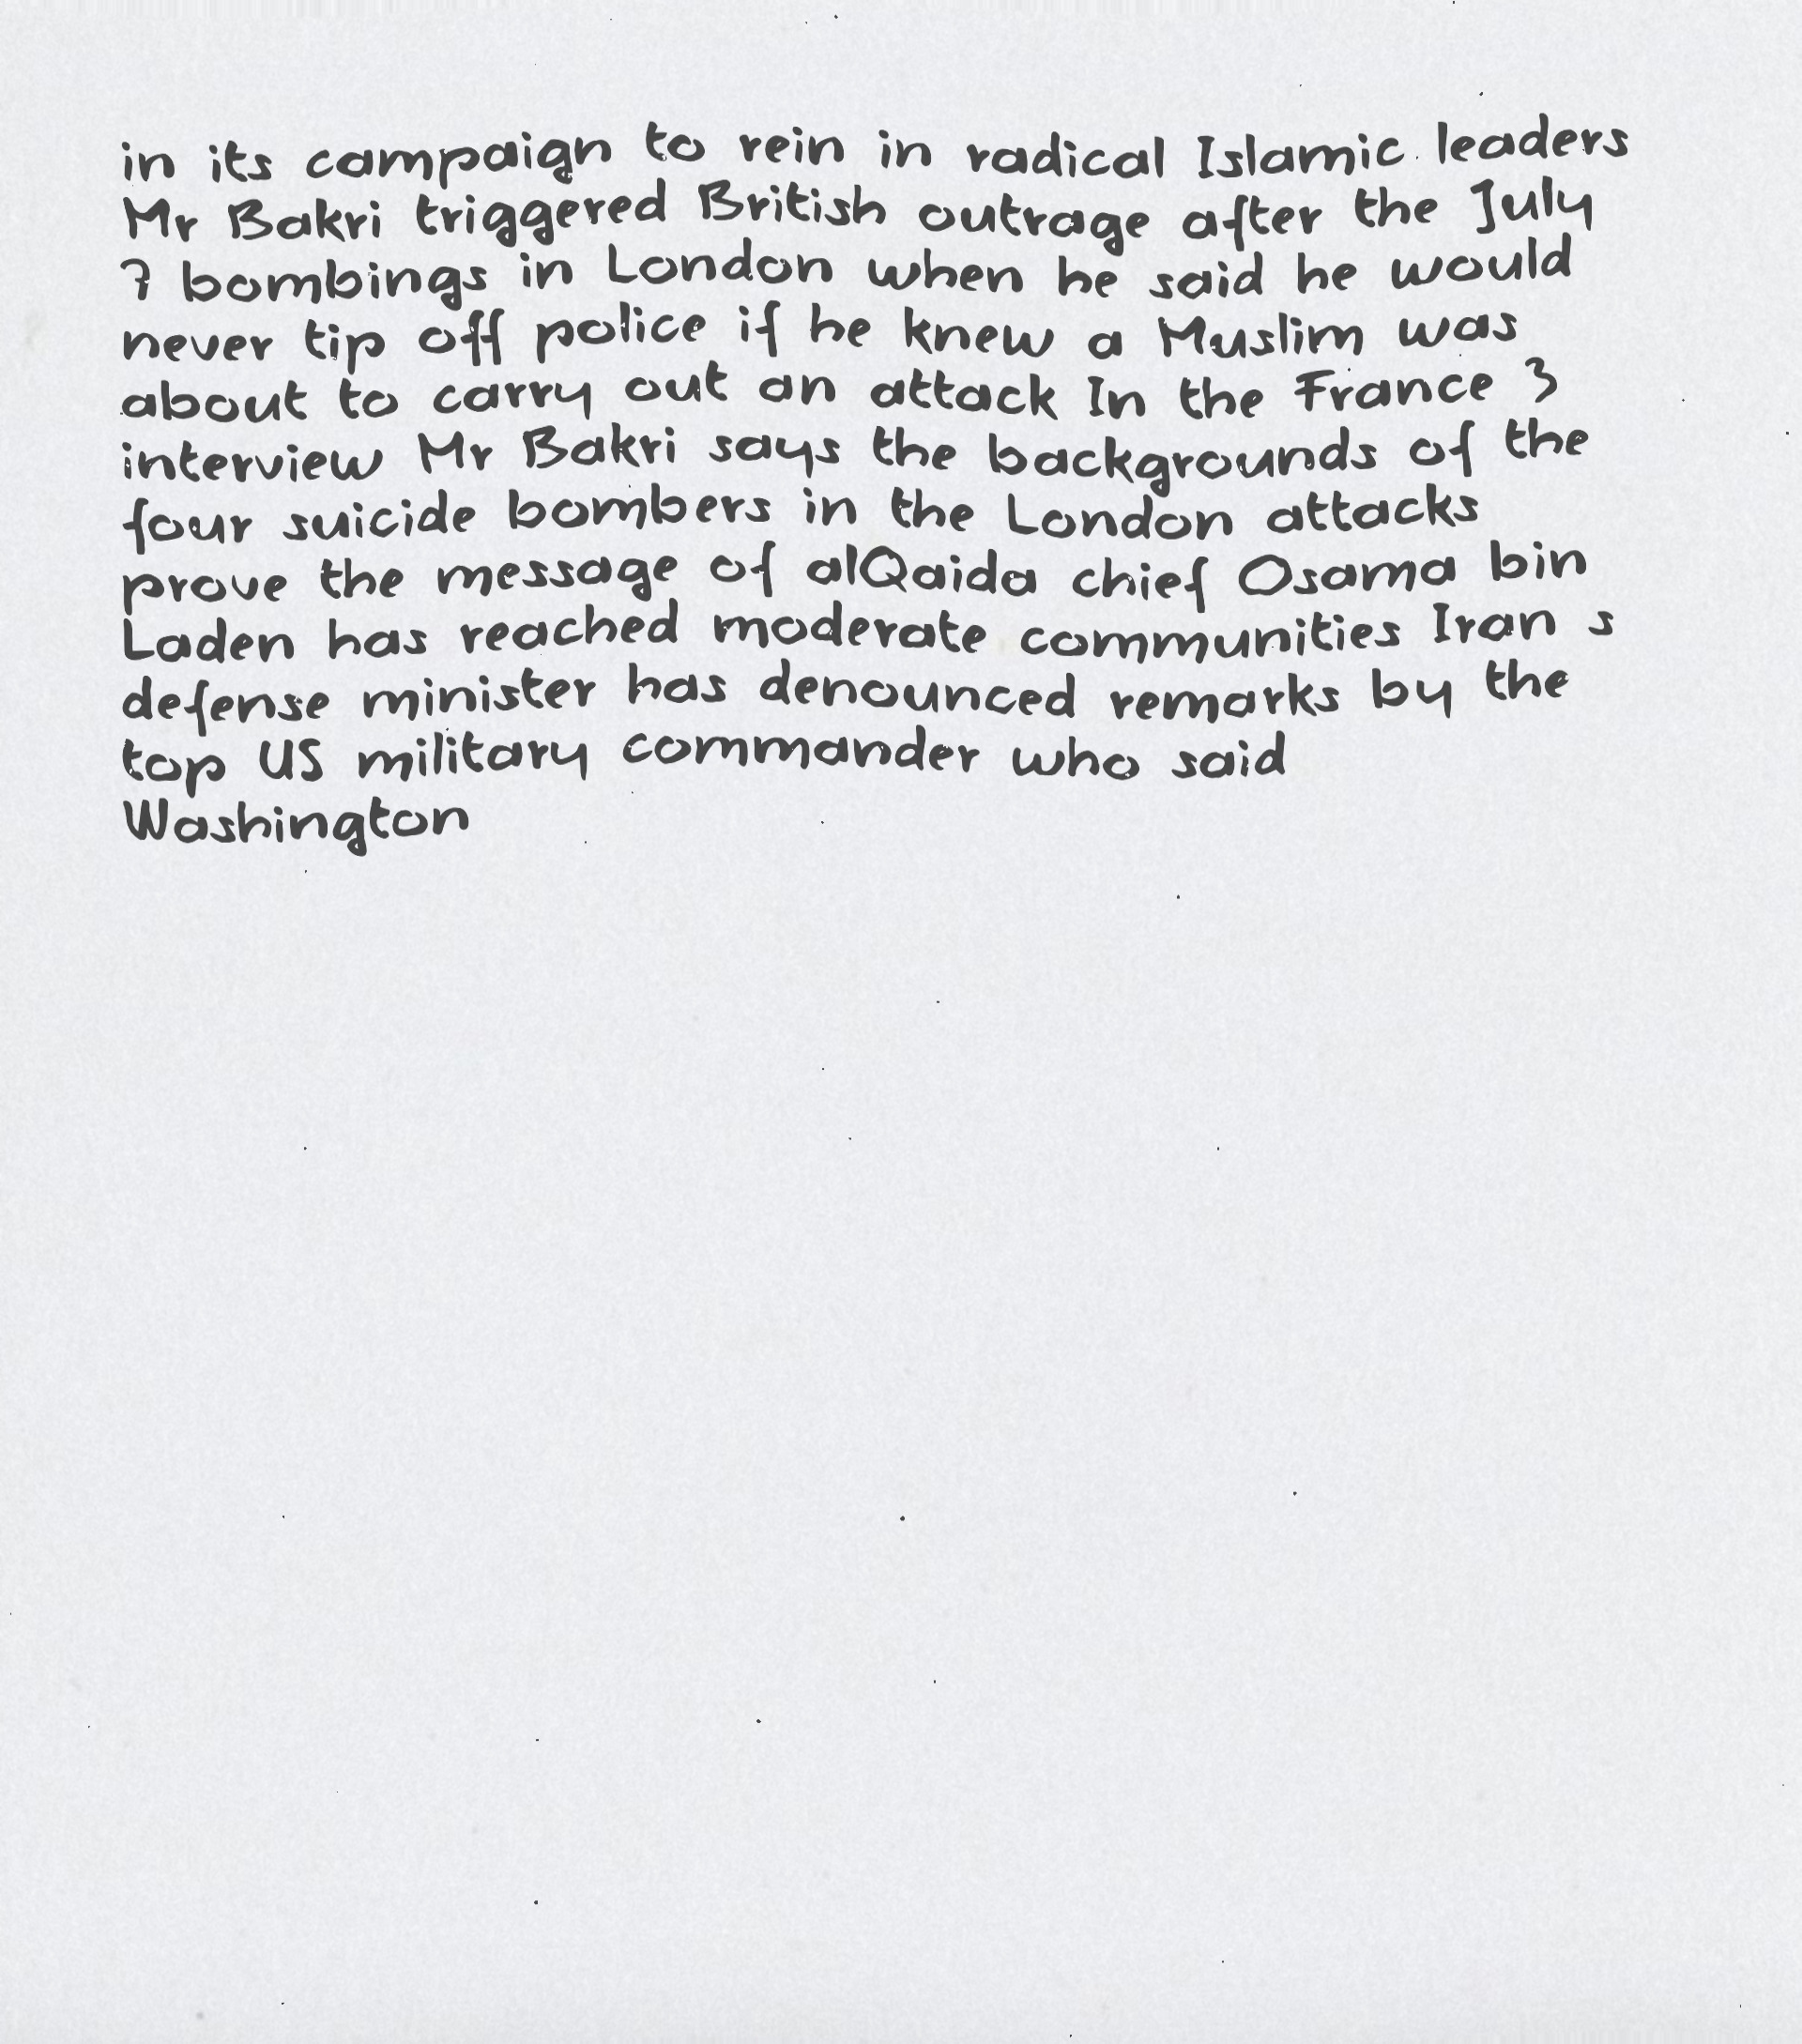 in its campaign to rein in radical Islamic leaders
Mr Bakri triggered British outrage after the July
7 bombings in London when he said he would
never tip off police if he knew a Muslim was
about to carry out an attack In the France 3
interview Mr Bakri says the backgrounds of the
four suicide bombers in the London attacks
prove the message of alQaida chief Osama bin
Laden has reached moderate communities Iran s
defense minister has denounced remarks by the
top US military commander who said
Washington